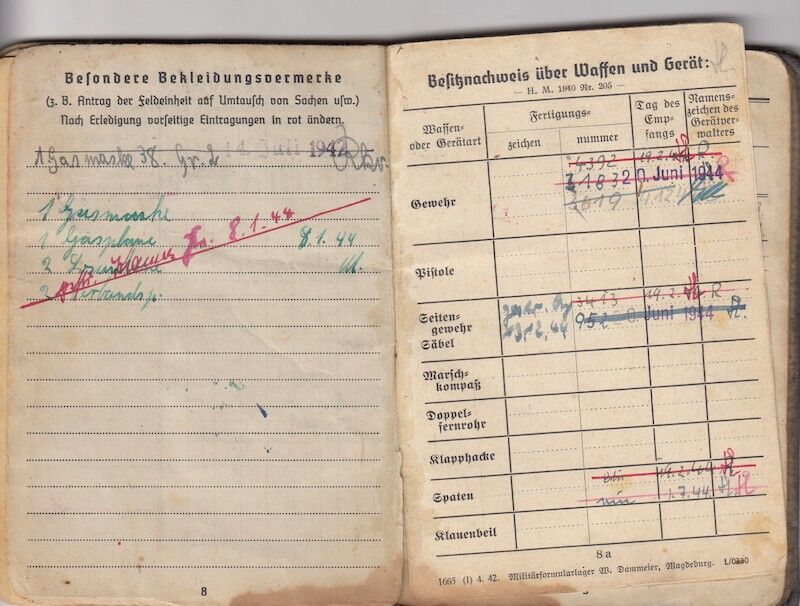 Besondere Bekleidungsvermerke
(z. B. Antrag der Feldeinheit auf Umtausch von Sachen usw.)
Nach Erledigung vorseitige Eintragungen in rot ändern.
1 Gasmaske 38. Gr. 2 14. Juli 1942
1 Gasmaske
1 Gasplane 8.1.44
8.1.44
2 Verbandsp.
8
Besitznachweis über Waffen und Gerät:
— H. M. 1940 Nr. 205 —
Waffen- oder Gerätart
Fertigungs-
zeichen
nummer
Tag des Emp- fangs
Namens- zeichen des Gerätver- walters
Gewehr
4392 19.2.44 R
1832 0. Juni 1944 R
3619
Pistole
Seiten- gewehr Säbel
3413 19.2. R
952 0. Juni 1944
Marsch- kompaß
Doppel- fernrohr
Klapphacke
Spaten
ein 19.2.44 R
1.7.44
Klauenbeil
8a
1665 (I) 4. 42. Militärformularlager W. Dammeier, Magdeburg. L/0330